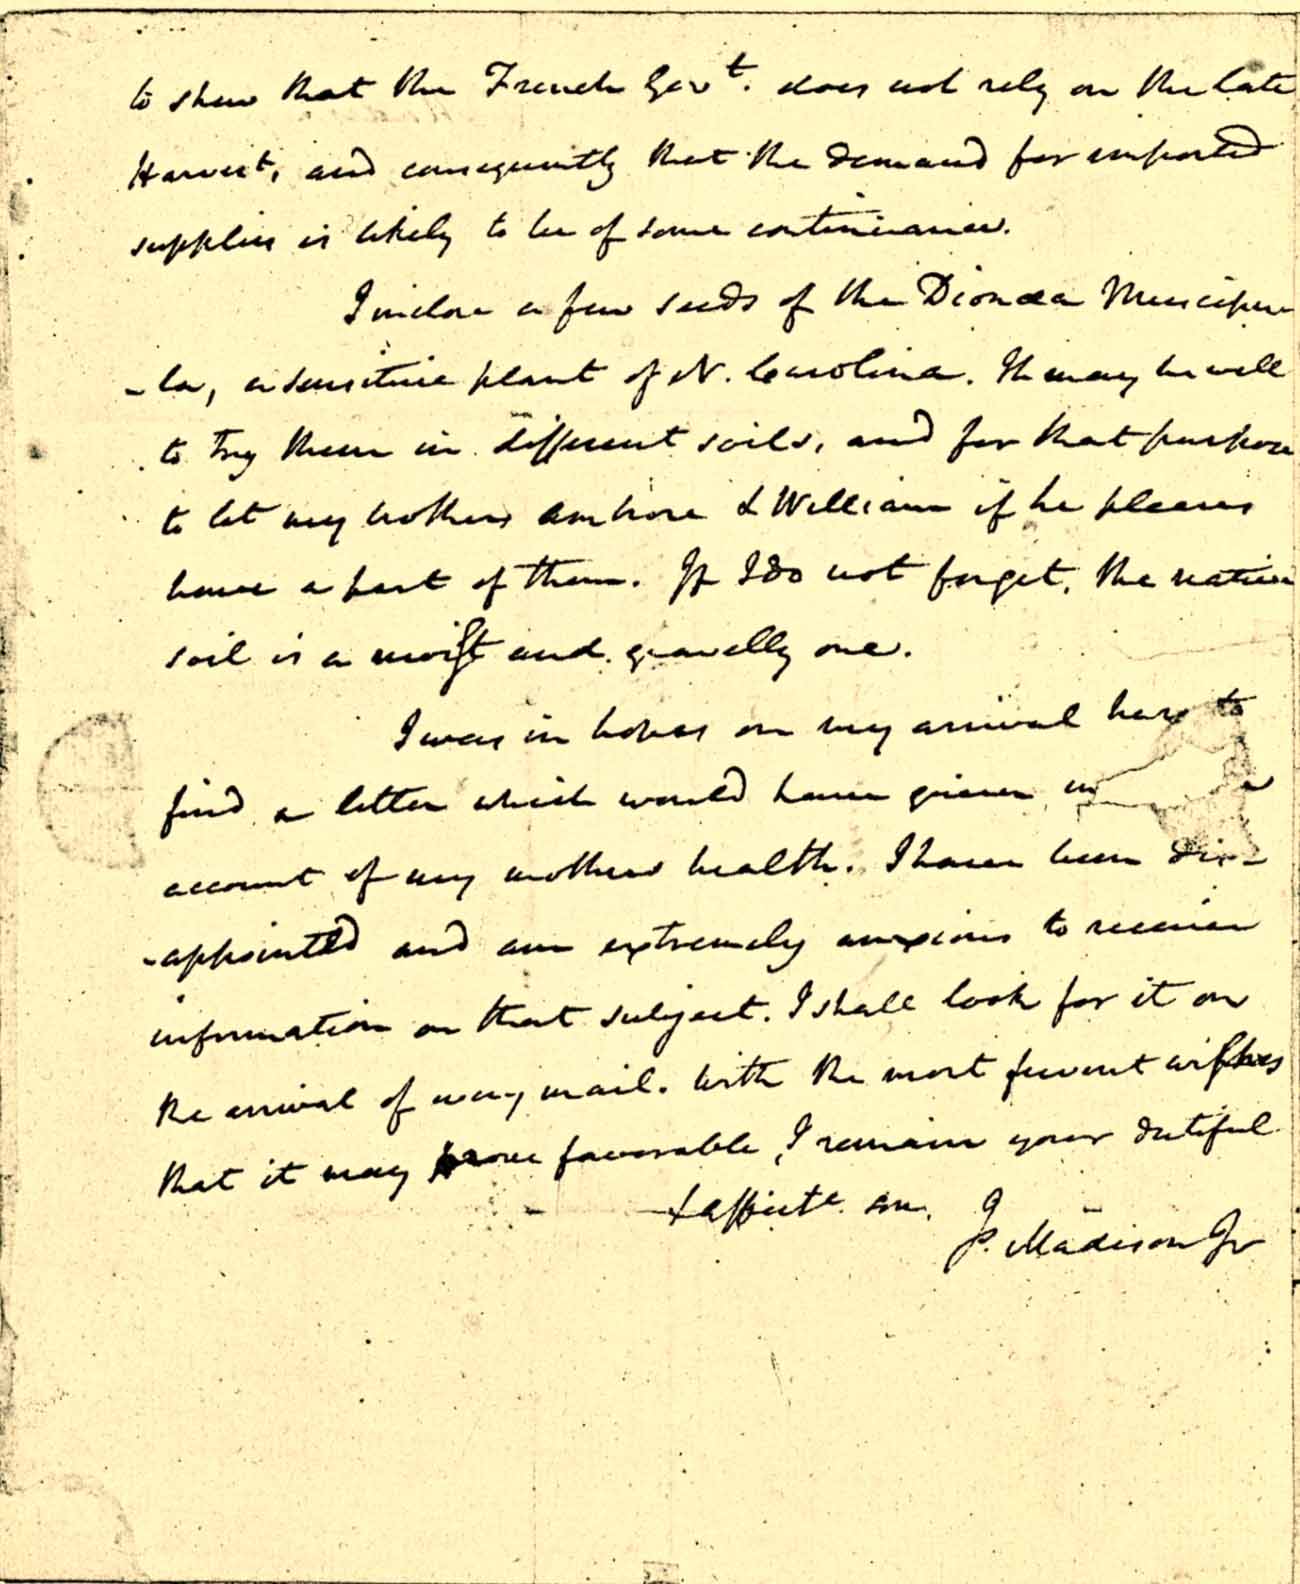 to shew that the French Govt. does not rely on the late
Harvest, and consequently that the demand for imported
supplies is likely to be of some continuance.
I inclose a few seeds of the Dionæa Muscipu
-la, a sensitive plant of N. Carolina. It may be well
to try them in different soils, and for that purpose
to let my brothers Ambrose & William if he pleases
have a part of them. If I do not forget, the native
soil is a moist and gravelly one.
I was in hopes on my arrival here to
find a letter which would have given
account of my mothers health. I have been dis-
-appointed and am extremely anxious to receive
information on that subject. I shall look for it on
the arrival of every mail. With the most fervent wishes
that it may prove favorable, I remain your dutiful
& affecte. son.
J. Madison Jr